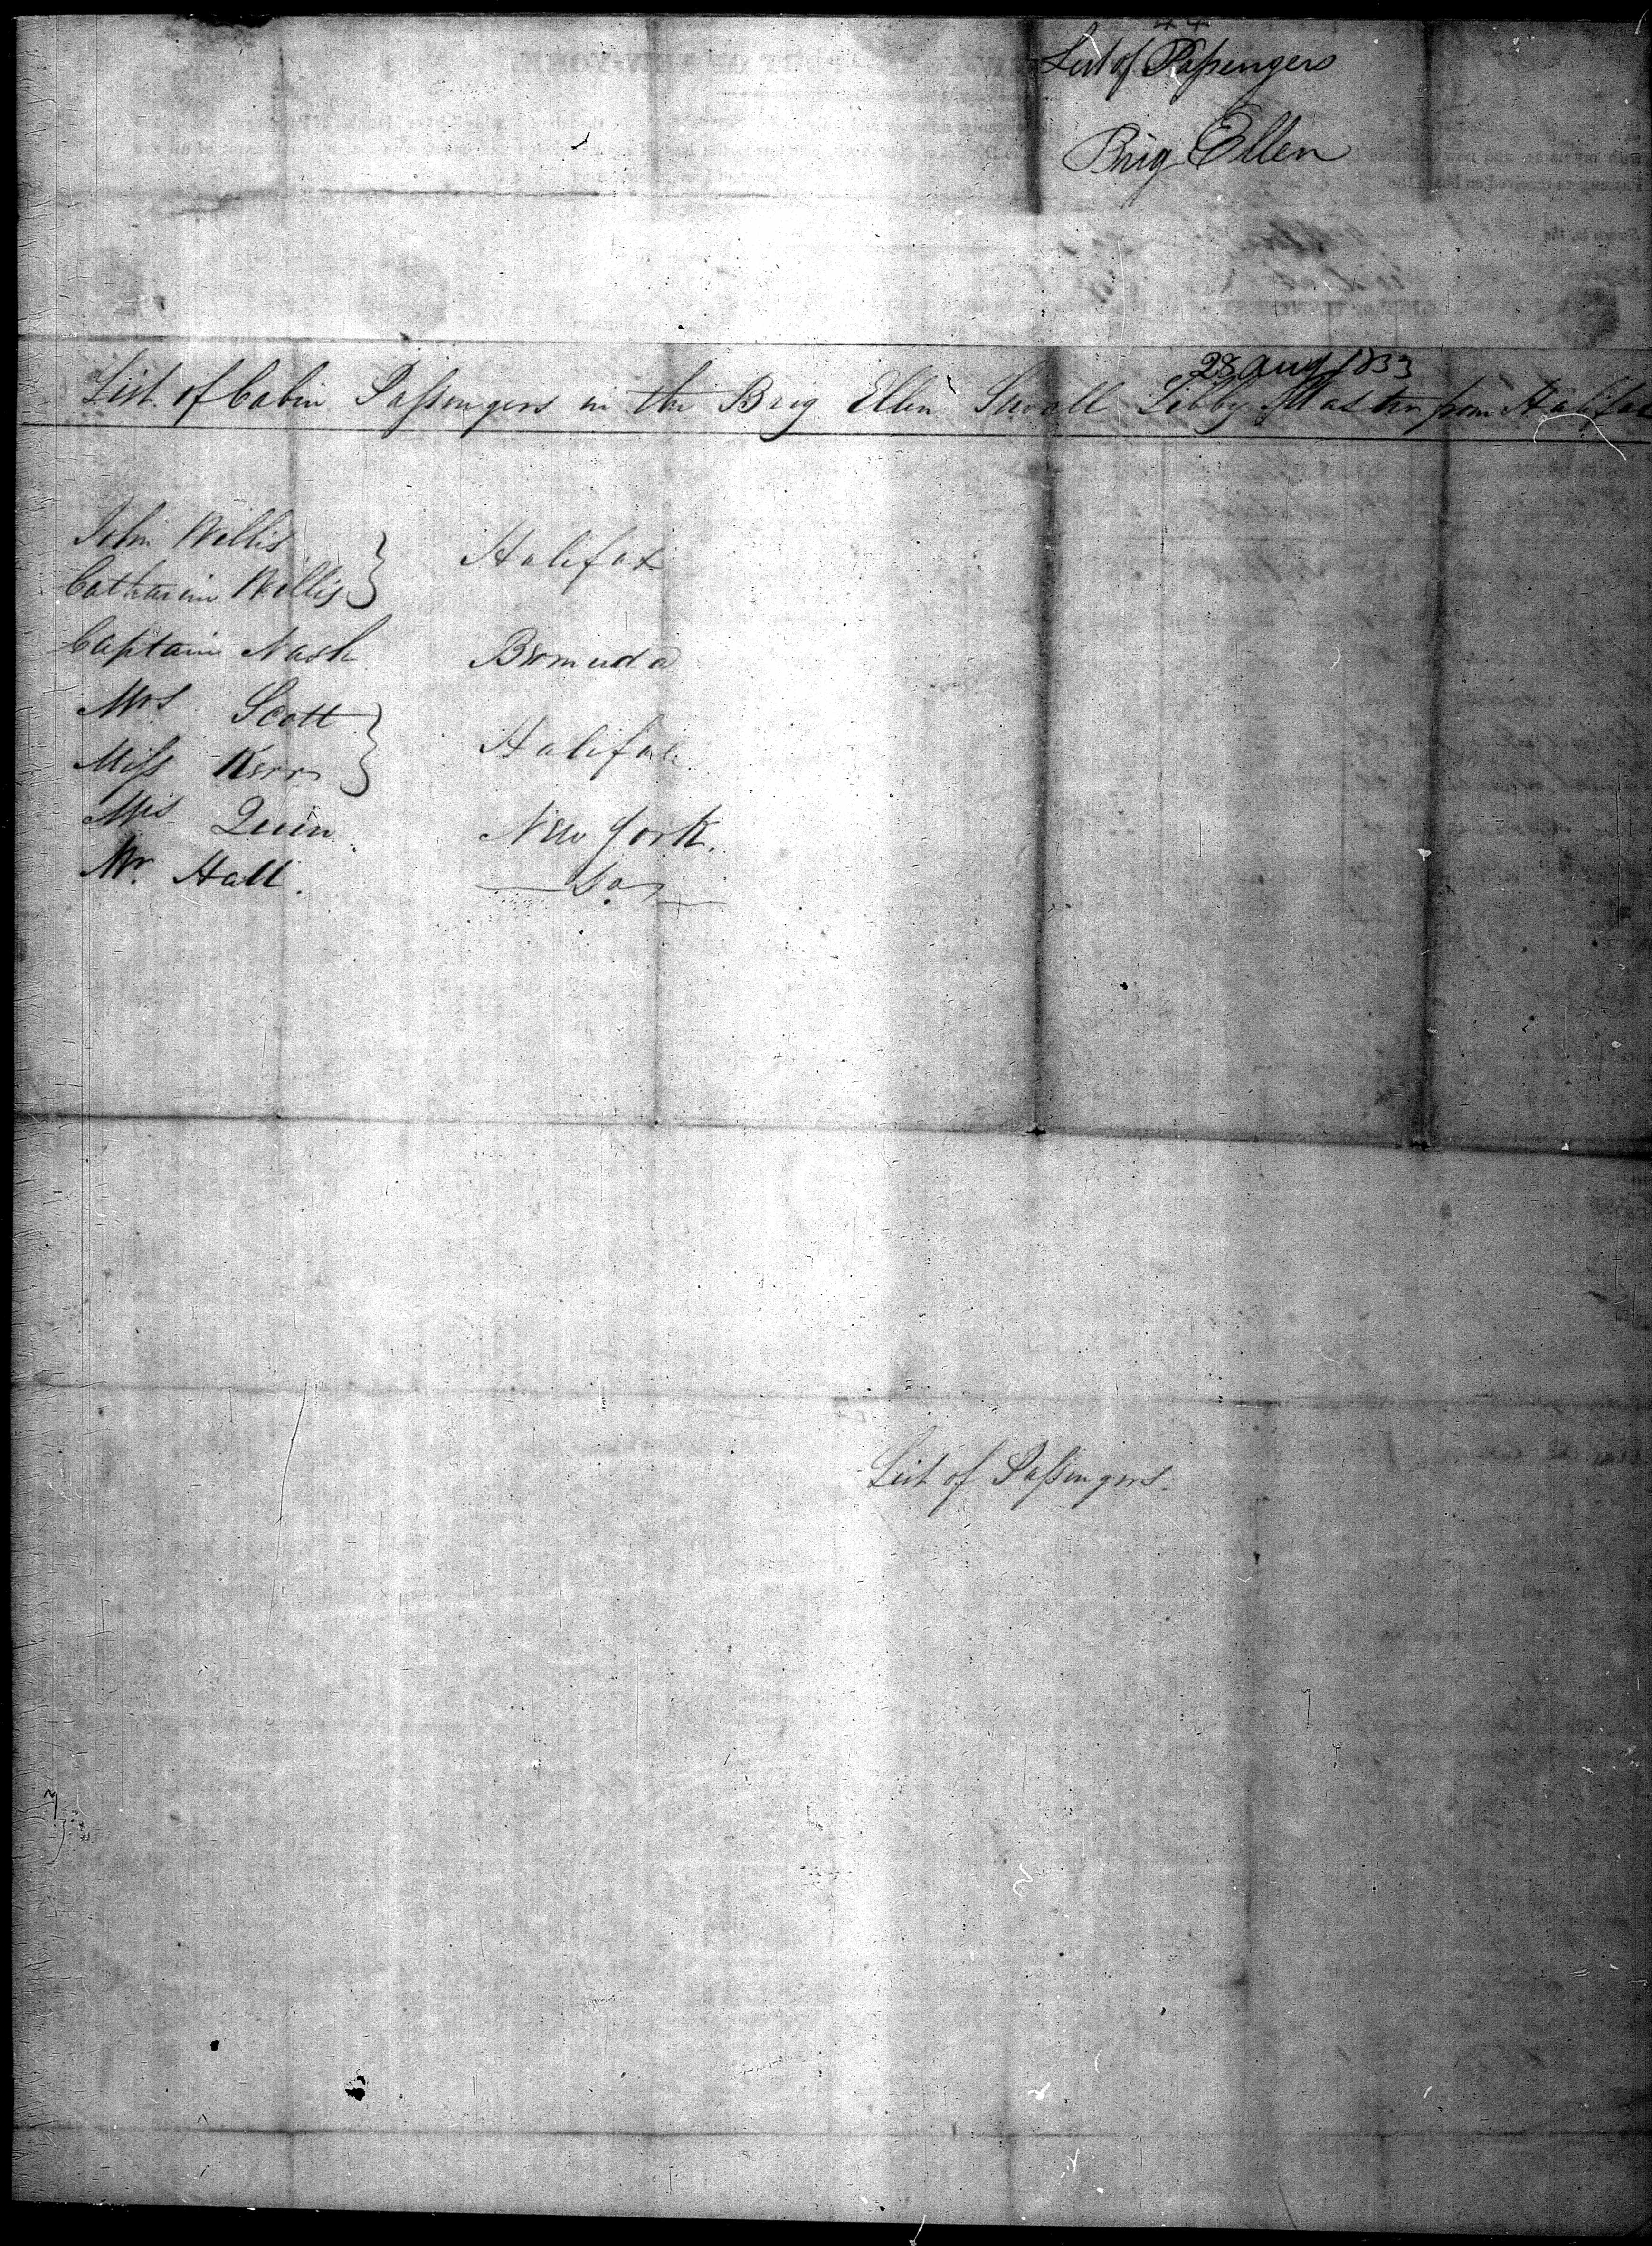 List of Passengers
Brig Ellen
28 Aug 1833
List of Cabin Passengers in the Brig Ellen Sewall Libby Master from Halifax
John Willis } Halifax
Catharine Willis }
Captain Nash Bermuda
Mrs Scott } Halifax
Miss Kerr }
Quin New York.
Mr. Hall. Do
List of Passengers.